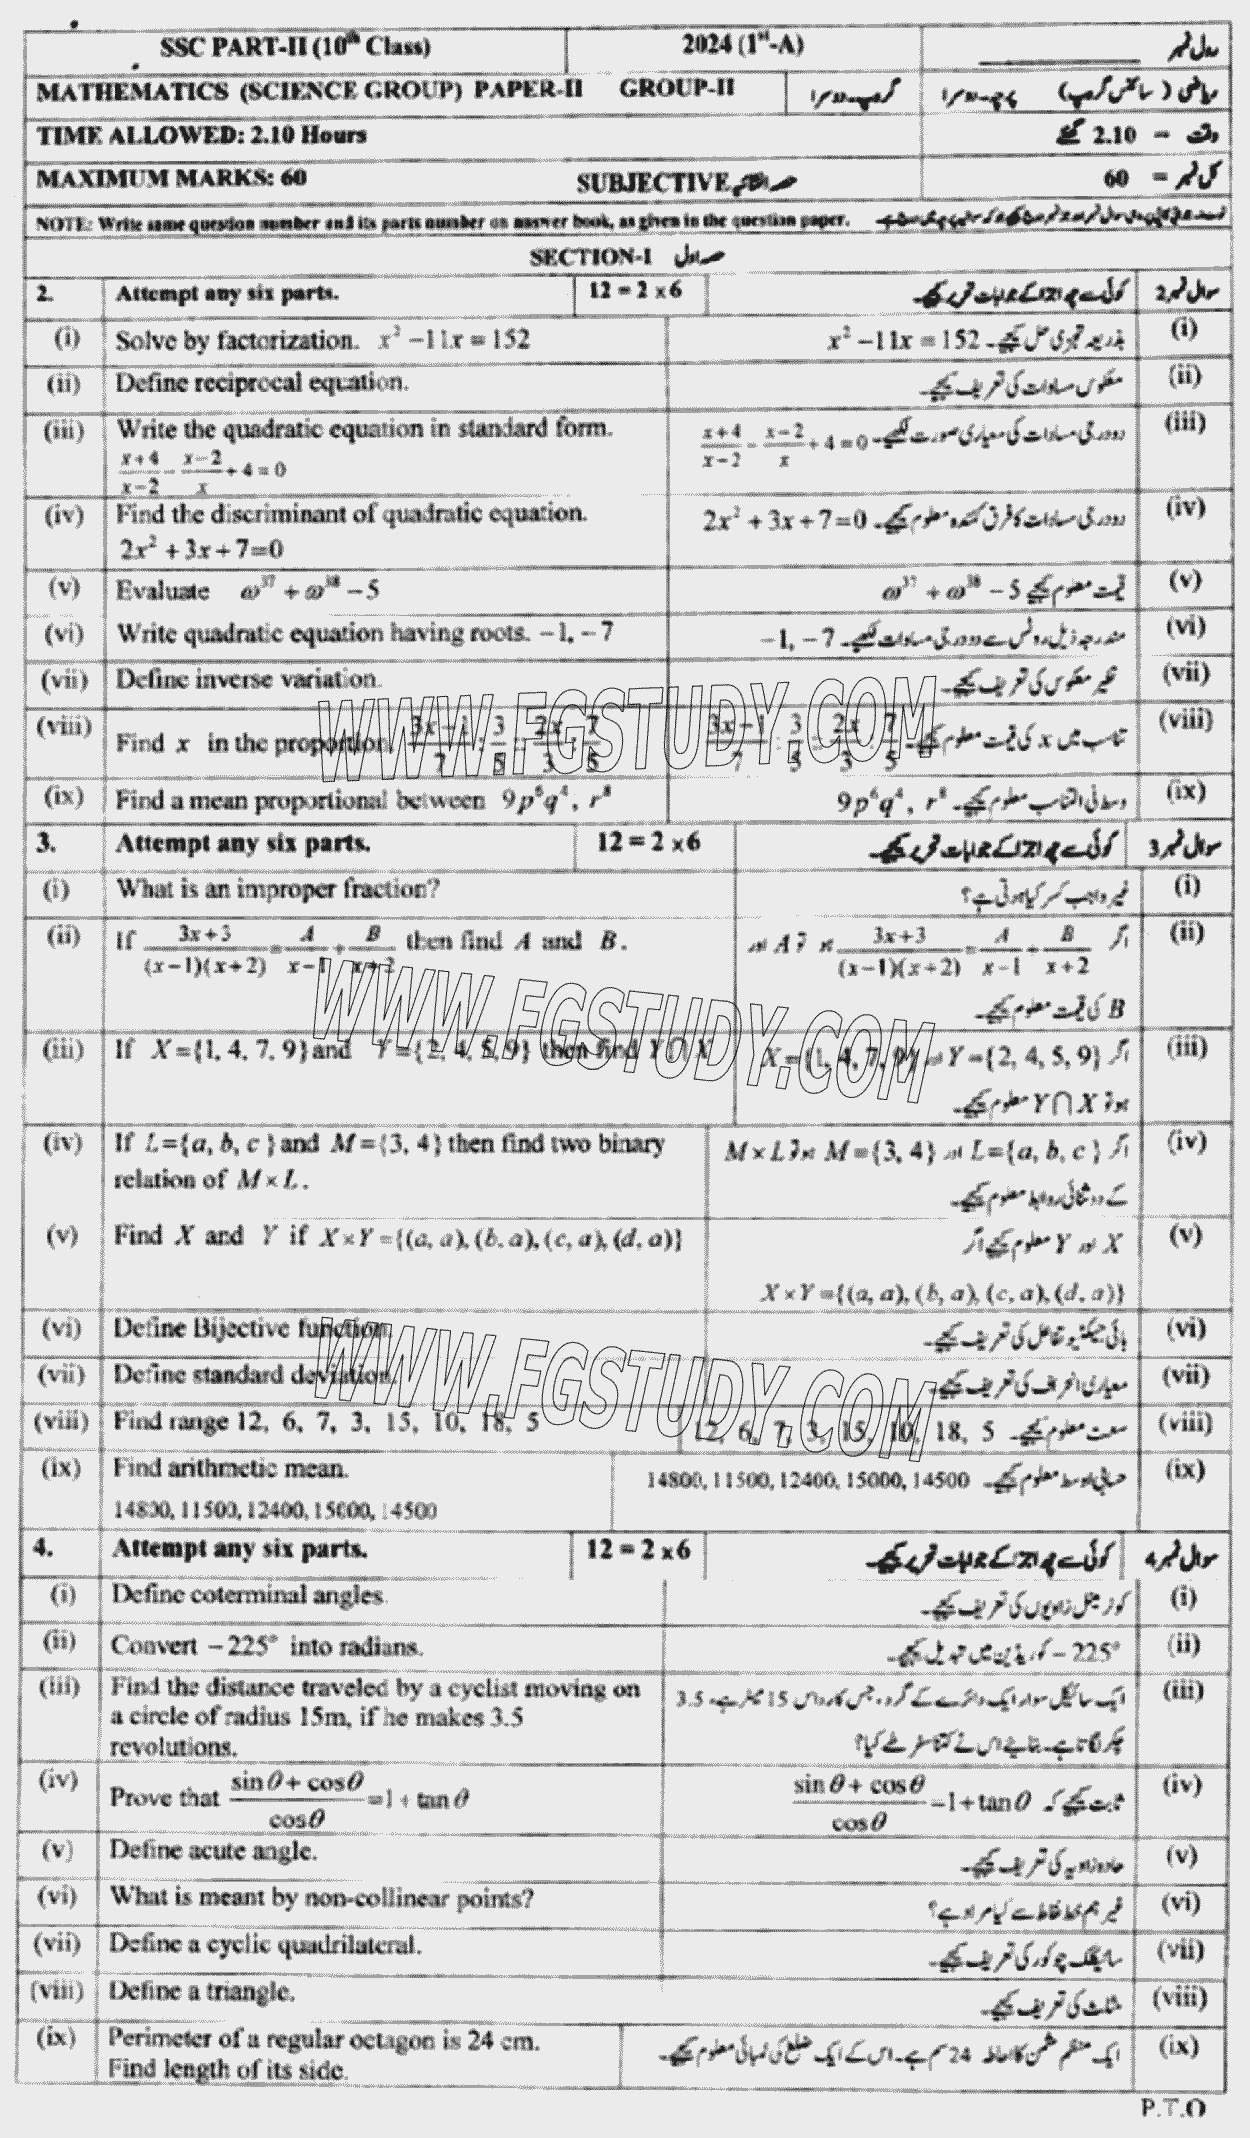 SSC PART-II (10th Class) 2024 (1st-A) رول نمبر
MATHEMATICS (SCIENCE GROUP) PAPER-II GROUP-II گروپ۔دوسرا پرچہ۔دوسرا ریاضی (سائنس گروپ)
TIME ALLOWED: 2.10 Hours وقت = 2.10 گھنٹے
MAXIMUM MARKS: 60 SUBJECTIVE حصہ انشائیہ کل نمبر = 60
NOTE: Write same question number and its parts number on answer book, as given in the question paper.
SECTION-I حصہ اول
2. Attempt any six parts. 12 = 2 x 6 کوئی سے چھ اجزا کے جوابات تحریر کیجیے۔ سوال نمبر 2
(i) Solve by factorization. x² −11x = 152 بذریعہ تجزی حل کیجیے۔ x² −11x = 152 (i)
(ii) Define reciprocal equation. معکوس مساوات کی تعریف کیجیے۔ (ii)
(iii) Write the quadratic equation in standard form. دو درجی مساوات کی معیاری صورت لکھیے۔ (x+4)/(x−2) − (x−2)/x + 4 = 0 (iii)
(x+4)/(x−2) − (x−2)/x + 4 = 0
(iv) Find the discriminant of quadratic equation. دو درجی مساوات کا فرق کنندہ معلوم کیجیے۔ 2x² + 3x + 7 = 0 (iv)
2x² + 3x + 7 = 0
(v) Evaluate ω³⁷ + ω³⁸ − 5 قیمت معلوم کیجیے ω³⁷ + ω³⁸ − 5 (v)
(vi) Write quadratic equation having roots. −1, −7 مندرجہ ذیل روٹس سے دو درجی مساوات لکھیے۔ −1, −7 (vi)
(vii) Define inverse variation. تغیر معکوس کی تعریف کیجیے۔ (vii)
(viii) Find x in the proportion. (3x−1)/7 : 3/5 :: 2x/3 : 7/5 تناسب میں x کی قیمت معلوم کیجیے۔ (3x−1)/7 : 3/5 :: 2x/3 : 7/5 (viii)
(ix) Find a mean proportional between 9p⁶q⁴ , r⁸ وسط فی التناسب معلوم کیجیے۔ 9p⁶q⁴ , r⁸ (ix)
3. Attempt any six parts. 12 = 2 x 6 کوئی سے چھ اجزا کے جوابات تحریر کیجیے۔ سوال نمبر 3
(i) What is an improper fraction? غیر واجب کسر کیا ہوتی ہے؟ (i)
(ii) If (3x+3)/((x−1)(x+2)) = A/(x−1) + B/(x+2) then find A and B. اگر (3x+3)/((x−1)(x+2)) = A/(x−1) + B/(x+2) ہو تو A اور (ii)
B کی قیمت معلوم کیجیے۔
(iii) If X = {1, 4, 7, 9} and Y = {2, 4, 5, 9} then find Y ∩ X اگر Y = {2, 4, 5, 9} اور X = {1, 4, 7, 9} (iii)
ہو تو Y ∩ X معلوم کیجیے۔
(iv) If L = {a, b, c } and M = {3, 4} then find two binary اگر L = {a, b, c } اور M = {3, 4} ہو تو M × L (iv)
relation of M × L . کے دو ثنائی روابط معلوم کیجیے۔
(v) Find X and Y if X × Y = {(a, a), (b, a), (c, a), (d, a)} X اور Y معلوم کیجیے اگر (v)
X × Y = {(a, a), (b, a), (c, a), (d, a)}
(vi) Define Bijective function. بائی جیکٹو تفاعل کی تعریف کیجیے۔ (vi)
(vii) Define standard deviation. معیاری انحراف کی تعریف کیجیے۔ (vii)
(viii) Find range 12, 6, 7, 3, 15, 10, 18, 5 سعت معلوم کیجیے۔ 12, 6, 7, 3, 15, 10, 18, 5 (viii)
(ix) Find arithmetic mean. حسابی اوسط معلوم کیجیے۔ 14800, 11500, 12400, 15000, 14500 (ix)
14800, 11500, 12400, 15000, 14500
4. Attempt any six parts. 12 = 2 x 6 کوئی سے چھ اجزا کے جوابات تحریر کیجیے۔ سوال نمبر 4
(i) Define coterminal angles. کوٹرمینل زاویوں کی تعریف کیجیے۔ (i)
(ii) Convert − 225° into radians. − 225° کو ریڈین میں تبدیل کیجیے۔ (ii)
(iii) Find the distance traveled by a cyclist moving on ایک سائیکل سوار ایک دائرے کے گرد، جس کا رداس 15 میٹر ہے، 3.5 (iii)
a circle of radius 15m, if he makes 3.5 چکر لگاتا ہے۔ بتائیے اس نے کتنا سفر طے کیا؟
revolutions.
(iv) Prove that (sin θ + cos θ)/cos θ = 1 + tan θ ثابت کیجیے کہ (sin θ + cos θ)/cos θ = 1 + tan θ (iv)
(v) Define acute angle. حادہ زاویہ کی تعریف کیجیے۔ (v)
(vi) What is meant by non-collinear points? غیر ہم خط نقاط سے کیا مراد ہے؟ (vi)
(vii) Define a cyclic quadrilateral. سائیکلک چوکور کی تعریف کیجیے۔ (vii)
(viii) Define a triangle. مثلث کی تعریف کیجیے۔ (viii)
(ix) Perimeter of a regular octagon is 24 cm. ایک منظم مثمن کا احاطہ 24 سم ہے۔ اس کے ایک ضلع کی لمبائی معلوم کیجیے۔ (ix)
Find length of its side.
P.T.O
WWW.FGSTUDY.COM
WWW.FGSTUDY.COM
WWW.FGSTUDY.COM